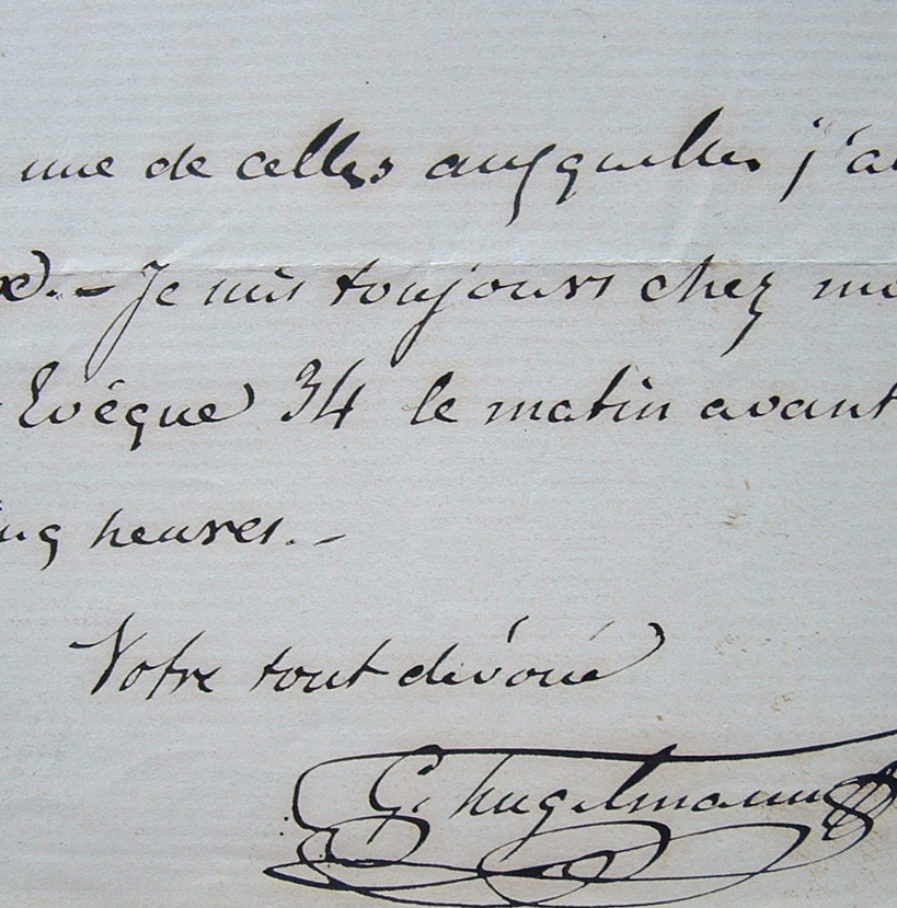 une de celles auxquelles j'ai
. - Je suis toujours chez mo
Evêque 34 le matin avant
inq heures. -
Votre tout dévoué
G. hugelmann